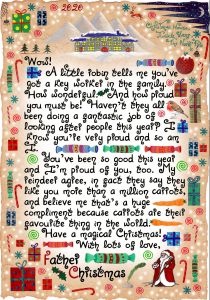 2020
Wow!
A little robin tells me you've
got a key worker in the family.
How wonderful. And how proud
you must be! Haven't they all
been doing a fantastic job of
looking after people this year? I
know you're very proud and so am
I!
You've been so good this year
and I'm proud of you, too. My
reindeer agree, in fact they say they
like you more than a million carrots,
and believe me that's a huge
compliment because carrots are their
favourite thing in the world.
Have a magical Christmas!
With lots of love,
Father
Christmas